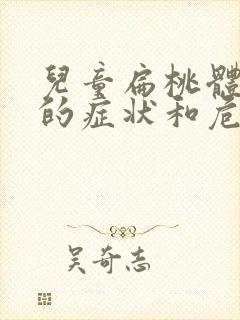 兒童扁桃體
的症状和危
吴奇志